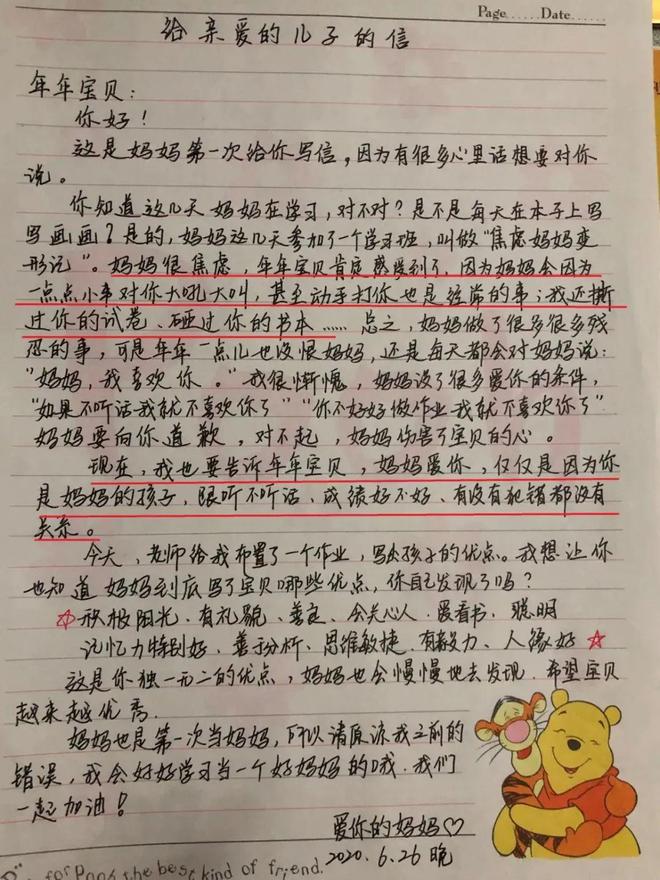 Page......Date......
给亲爱的儿子的信
年年宝贝：
你好！
这是妈妈第一次给你写信，因为有很多心里话想要对你
说。
你知道这几天妈妈在学习，对不对？是不是每天在本子上写
写画画？是的，妈妈这几天参加了一个学习班，叫做“焦虑妈妈变
形记”。妈妈很焦虑，年年宝贝肯定感受到了，因为妈妈会因为
一点点小事对你大吼大叫，甚至动手打你也是经常的事；我还撕
过你的试卷、砸过你的书本……总之，妈妈做了很多很多残
忍的事，可是年年一点儿也没恨妈妈，还是每天都会对妈妈说：
“妈妈，我喜欢你。”我很惭愧，妈妈设了很多爱你的条件，
“如果不听话我就不喜欢你了”“你不好好做作业我就不喜欢你了”
妈妈要向你道歉，对不起，妈妈伤害了宝贝的心。
现在，我也要告诉年年宝贝，妈妈爱你，仅仅是因为你
是妈妈的孩子，跟听不听话、成绩好不好、有没有犯错都没有
关系。
今天，老师给我布置了一个作业，写出孩子的优点。我想让你
也知道妈妈到底写了宝贝哪些优点，你自己发现了吗？
☆积极阳光、有礼貌、善良、会关心人、爱看书、聪明
记忆力特别好、善于分析、思维敏捷、有毅力、人缘好☆
这是你独一无二的优点，妈妈也会慢慢地去发现．希望宝贝
越来越优秀．
妈妈也是第一次当妈妈，所以请原谅我之前的
错误，我会好好学习当一个好妈妈的哦．我们
一起加油！
爱你的妈妈♡
2020.6.26晚
for Pooh, the best kind of friend.